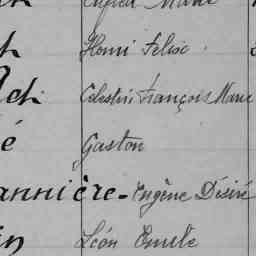 Alfred Marie
Henri Felix
Célestin François Marie
é Gaston
annière - Eugène Désiré
in Léon Emile